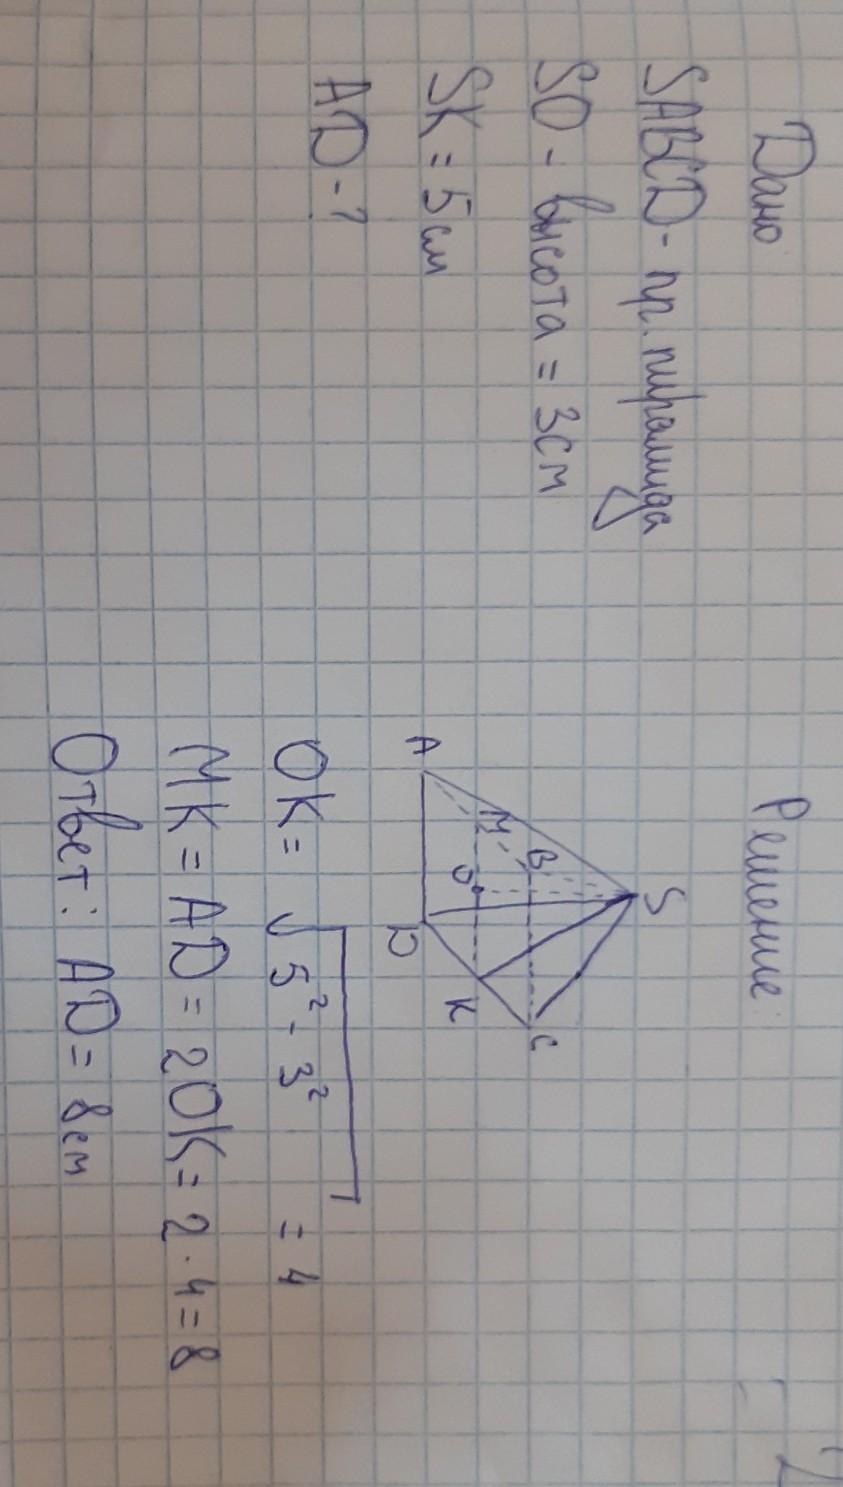 Дано
SABCD - пр. пирамида
SO - высота = 3см
SK = 5см
AD - ?
Решение:
S
A
M
B
O
D
K
C
OK = √5² - 3² = 4
MK = AD = 2OK = 2 · 4 = 8
Ответ: AD = 8см